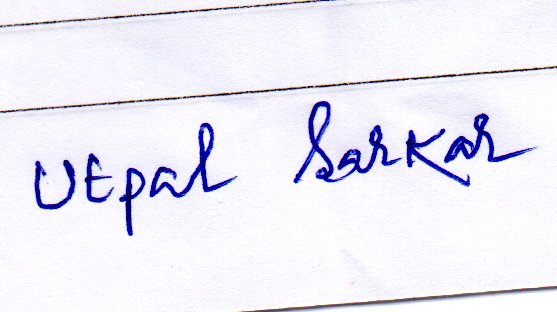 Utpal Sarkar